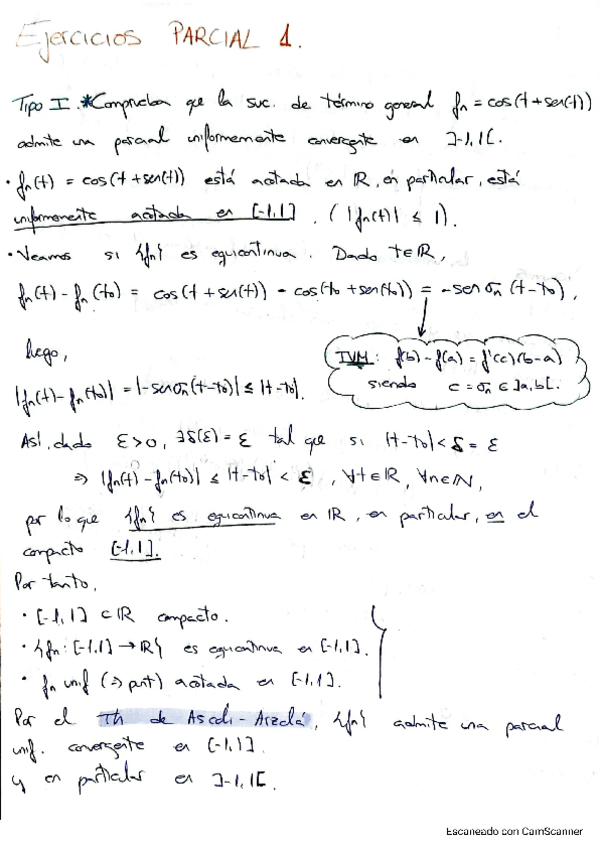 EJERCICIOS PARCIAL 1.
Tipo I. *Comprueba que la suc. de término general fn = cos(t+sen(t))
admite una parcial uniformemente convergente en ]-1,1[.
• fn(t) = cos(t+sen(t)) está acotada en ℝ, en particular, está
uniformemente acotada en [-1,1]. (|fn(t)| ≤ 1).
• Veamos si {fn} es equicontinua. Dado t∈ℝ,
fn(t) - fn(t0) = cos(t+sen(t)) - cos(t0+sen(t0)) = -sen σn (t-t0),
luego,
TVM: f(b) - f(a) = f'(c)(b-a)
siendo c = σn ∈ ]a,b[.
|fn(t)-fn(t0)| = |-sen σn(t-t0)| ≤ |t-t0|.
Así, dado ε>0, ∃δ(ε)=ε tal que si |t-t0| < δ = ε
⇒ |fn(t) - fn(t0)| ≤ |t-t0| < ε, ∀t∈ℝ, ∀n∈ℕ,
por lo que {fn} es equicontinua en ℝ, en particular, en el
compacto [-1,1].
Por tanto,
• [-1,1] ⊂ ℝ compacto.
• {fn: [-1,1] → ℝ} es equicontinua en [-1,1].
• fn unif (⇒ punt) acotada en [-1,1].
Por el Th de Ascoli-Arzelá, {fn} admite una parcial
unif. convergente en [-1,1].
y en particular en ]-1,1[.
Escaneado con CamScanner